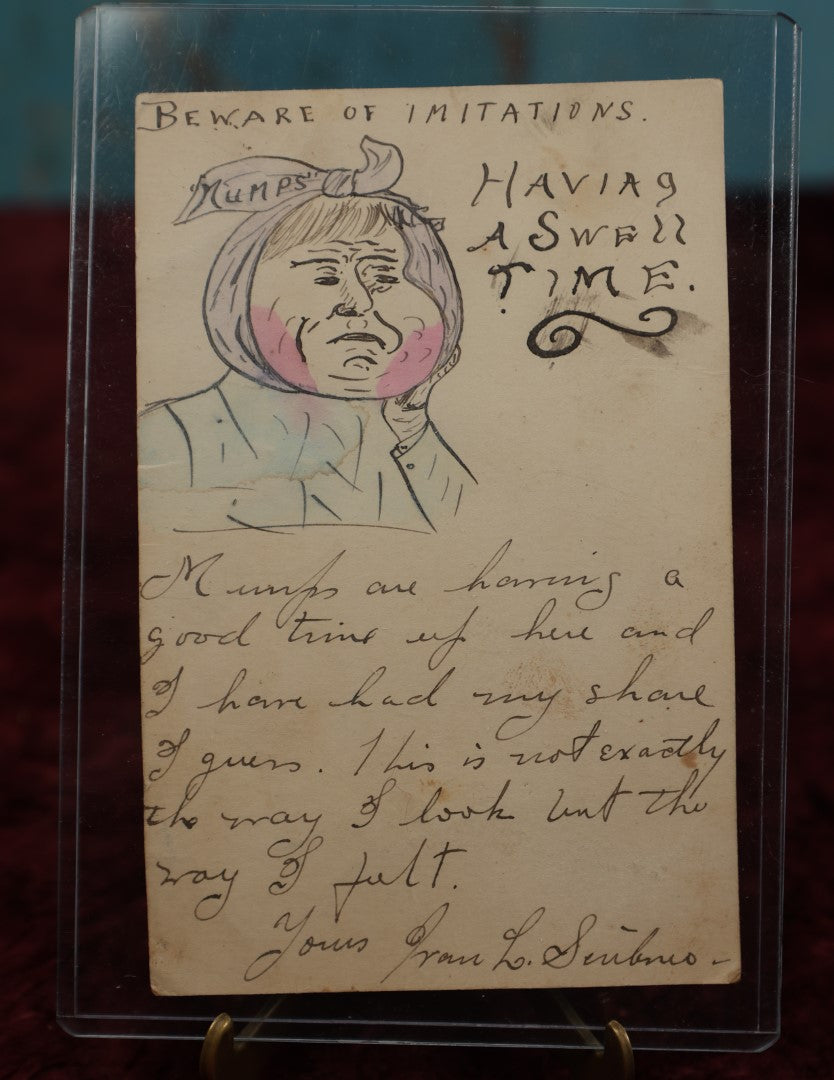 BEWARE OF IMITATIONS.
"MUMPS"
HAVING
A SWELL
TIME.
Mumps are having a
good time up here and
I have had my share
I guess. This is not exactly
the way I look but the
way I felt.
Yours Ivan L.